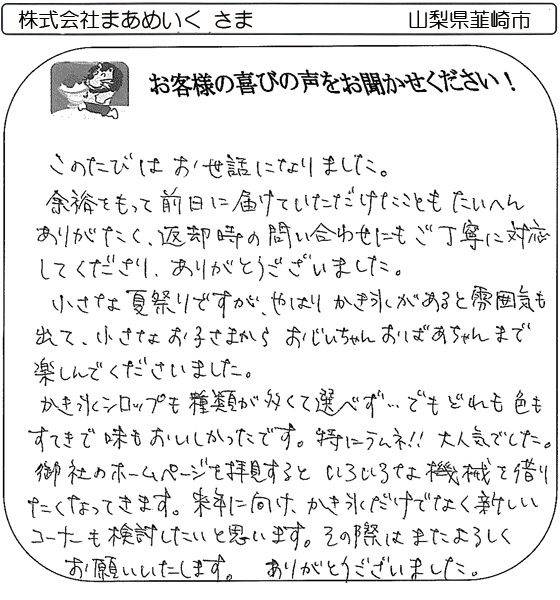 株式会社まあめいく さま 山梨県韮崎市
お客様の喜びの声をお聞かせください！
このたびは お世話になりました。
余裕をもって 前日に届けていただけたことも たいへん
ありがたく、返却時の問い合わせにもご丁寧に対応
してくださり、ありがとうございました。
小さな夏祭りですが、やはり かき氷があると雰囲気も
出て、小さなお子さまから おじいちゃんおばあちゃんまで
楽しんでくださいました。
かき氷シロップも種類が多くて選べず… でもどれも色も
すてきで味もおいしかったです。特にラムネ!! 大人気でした。
御社のホームページを拝見すると いろいろな機械を借り
たくなってきます。来年に向け、かき氷だけでなく新しい
コーナーも検討したいと思います。その際はまたよろしく
お願いいたします。 ありがとうございました。